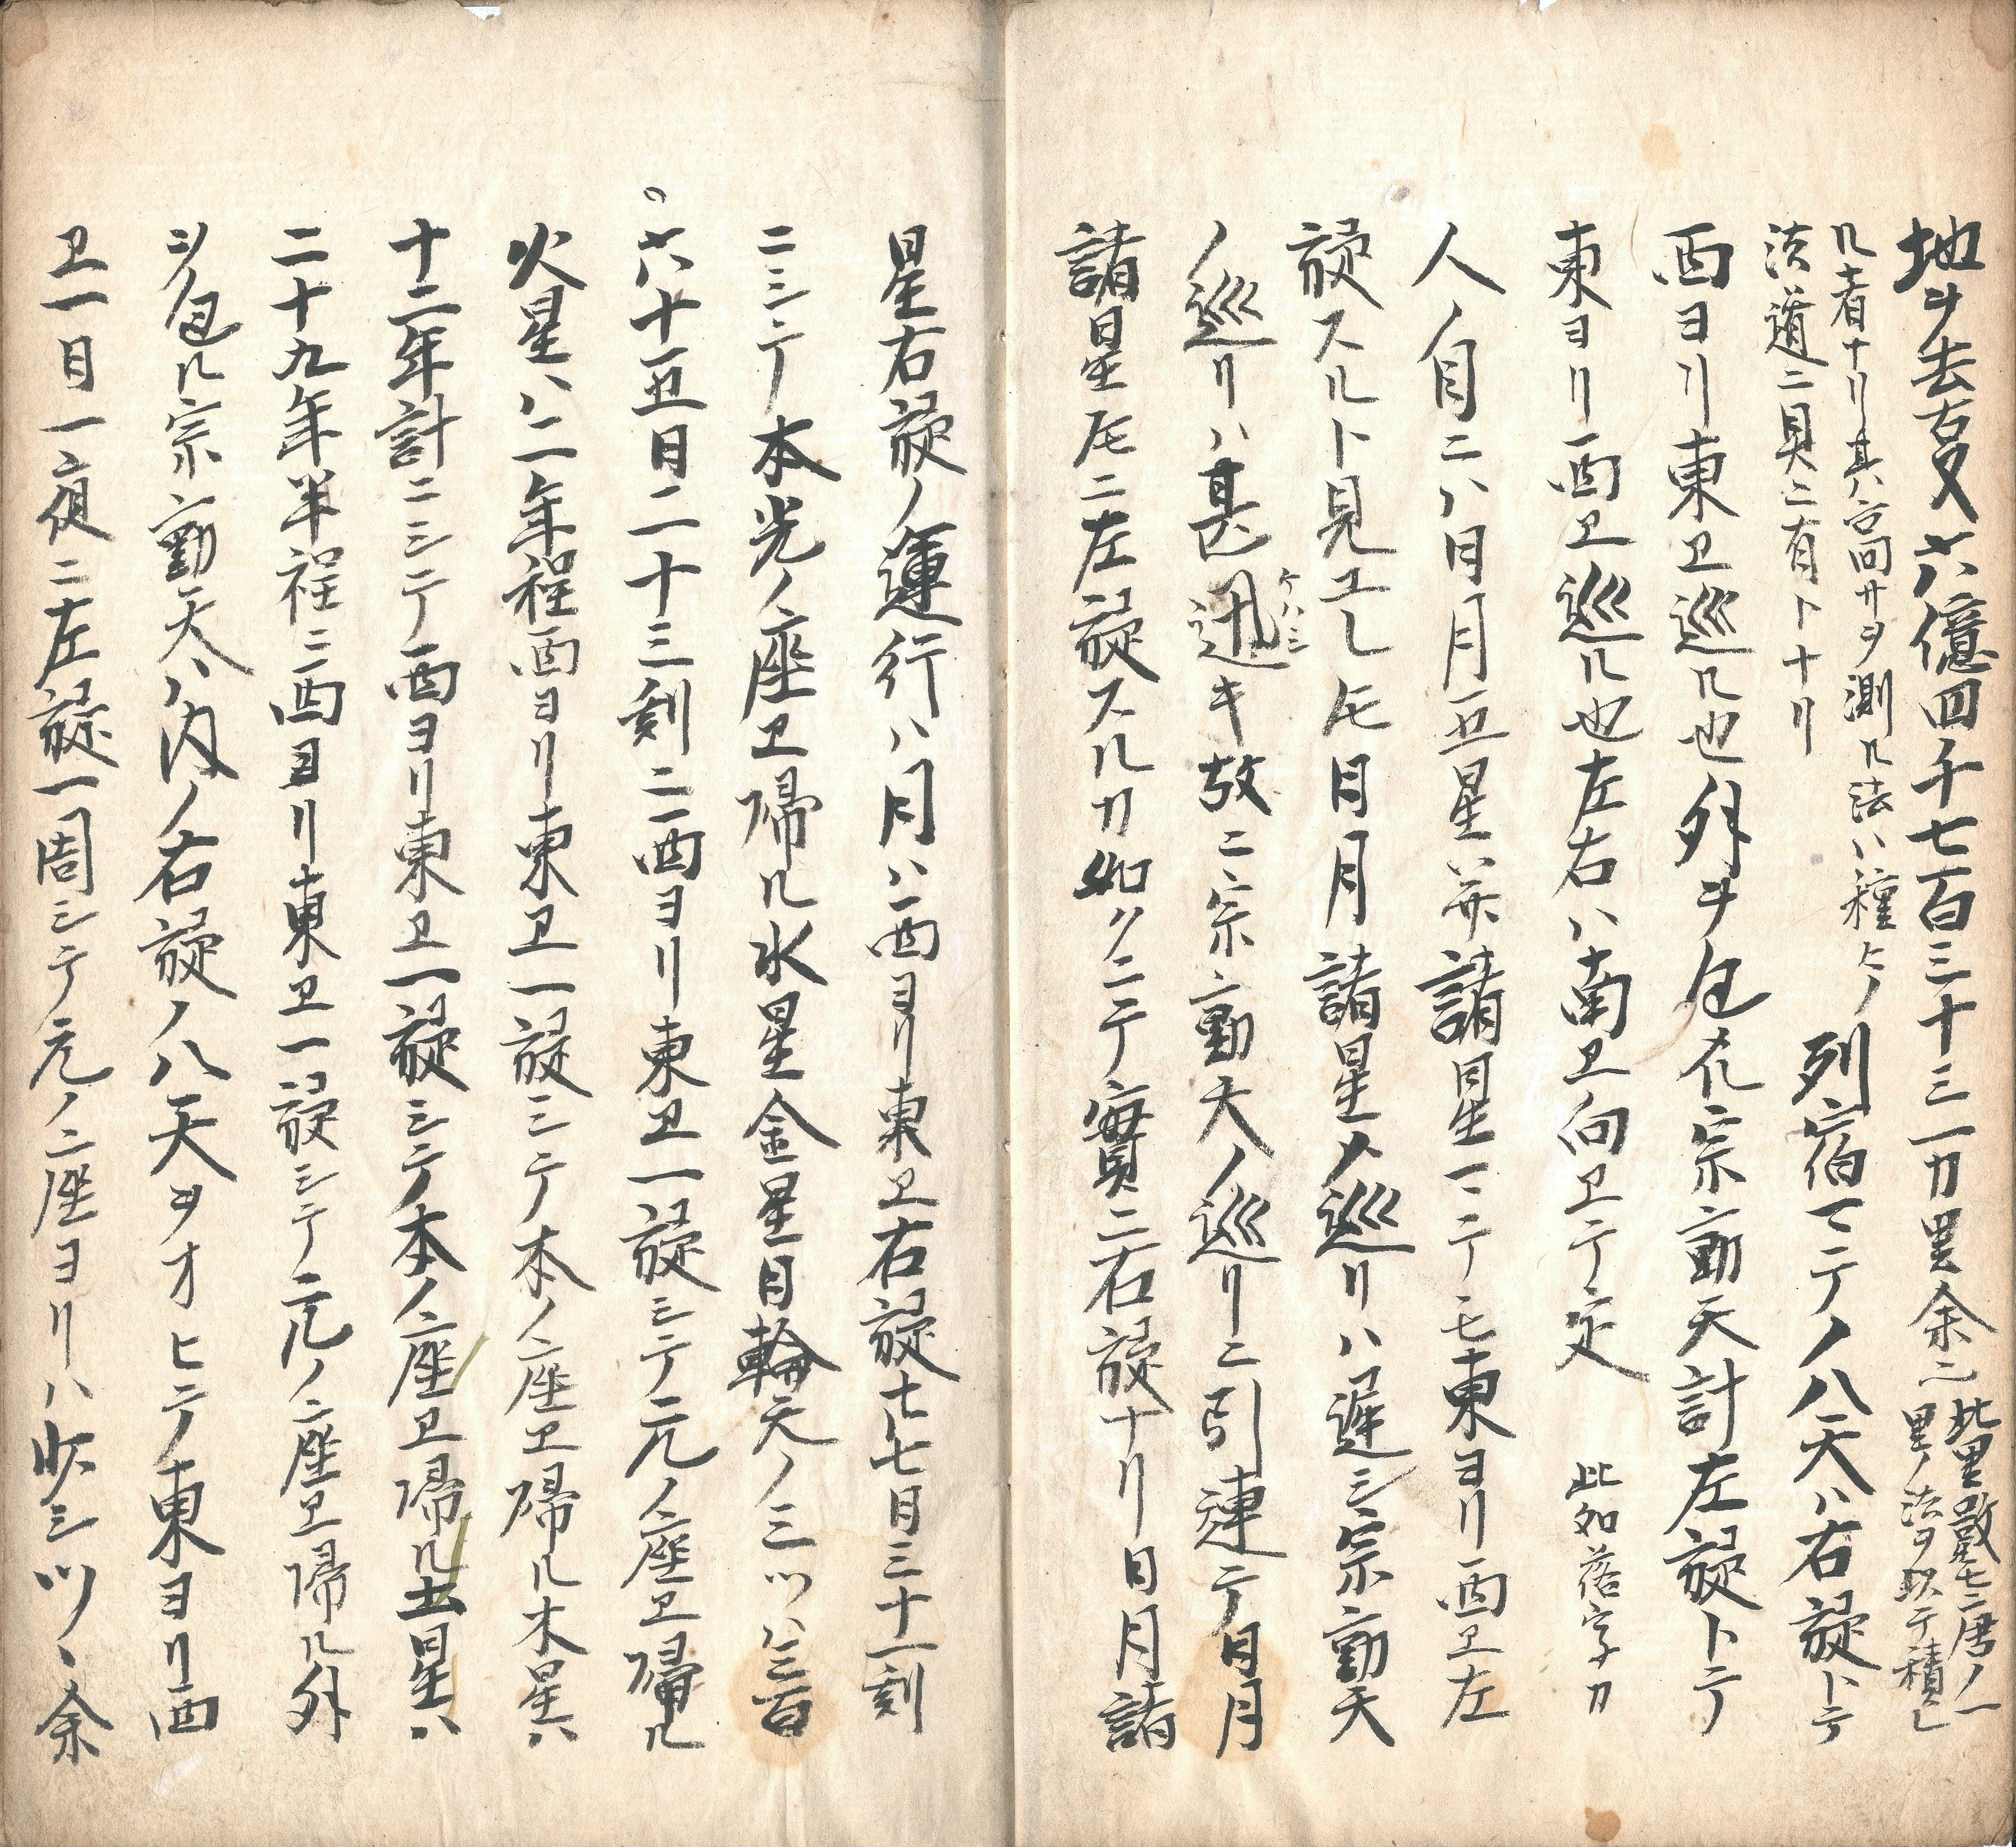 地ヲ去ヿ六億四千七百三十三一カ里余ニ
此里数モ唐ノ一
里ノ法ヲ以テ積し
ル者ナリ其ハ高サヲ測ル法ハ種ヒノ
法道ニ具ニ有トナリ
列宿マテノ八天ハ右旋トテ
西ヨリ東卫巡ル也外ヲ包衣宗動天計左旋トテ
東ヨリ西卫巡ル也左右ハ南卫向卫テ定
此如落字カ
人ノ目ニハ日月五星并諸星マテモ東ヨリ西卫左
旋スルト見エレ𪜈日月諸星ノ巡リハ遅シ宗動天
ノ巡リハ甚迅キ故ニ宗動天ノ巡リニ引連テ日月
ケハシ
諸星𪜈ニ左旋スルカ如クニテ實ニ右旋ナリ日月諸
星右旋ノ運行ハ月ハ西ヨリ東卫右旋廿七日三十一刻
ニシテ本光ノ座卫帰ル水星金星日輪天ノ三ツハ三百
六十五日二十三刻ニ西ヨリ東卫一旋シテ元ノ座卫帰ル
火星ハ二年程西ヨリ東卫一旋シテ本ノ座卫帰ル木星ハ
十二年計ニシテ西ヨリ東卫一旋シテ本ノ座卫帰ル土星ハ
二十九年半程ニ西ヨリ東卫一旋シテ元ノ座卫帰ル外
ヲ包ル宗動天ハ内ノ右旋ノ八天ヲオヒテ東ヨリ西
卫一日一夜ニ左旋一周シテ元ノ座ヨリハ少シツヽ余